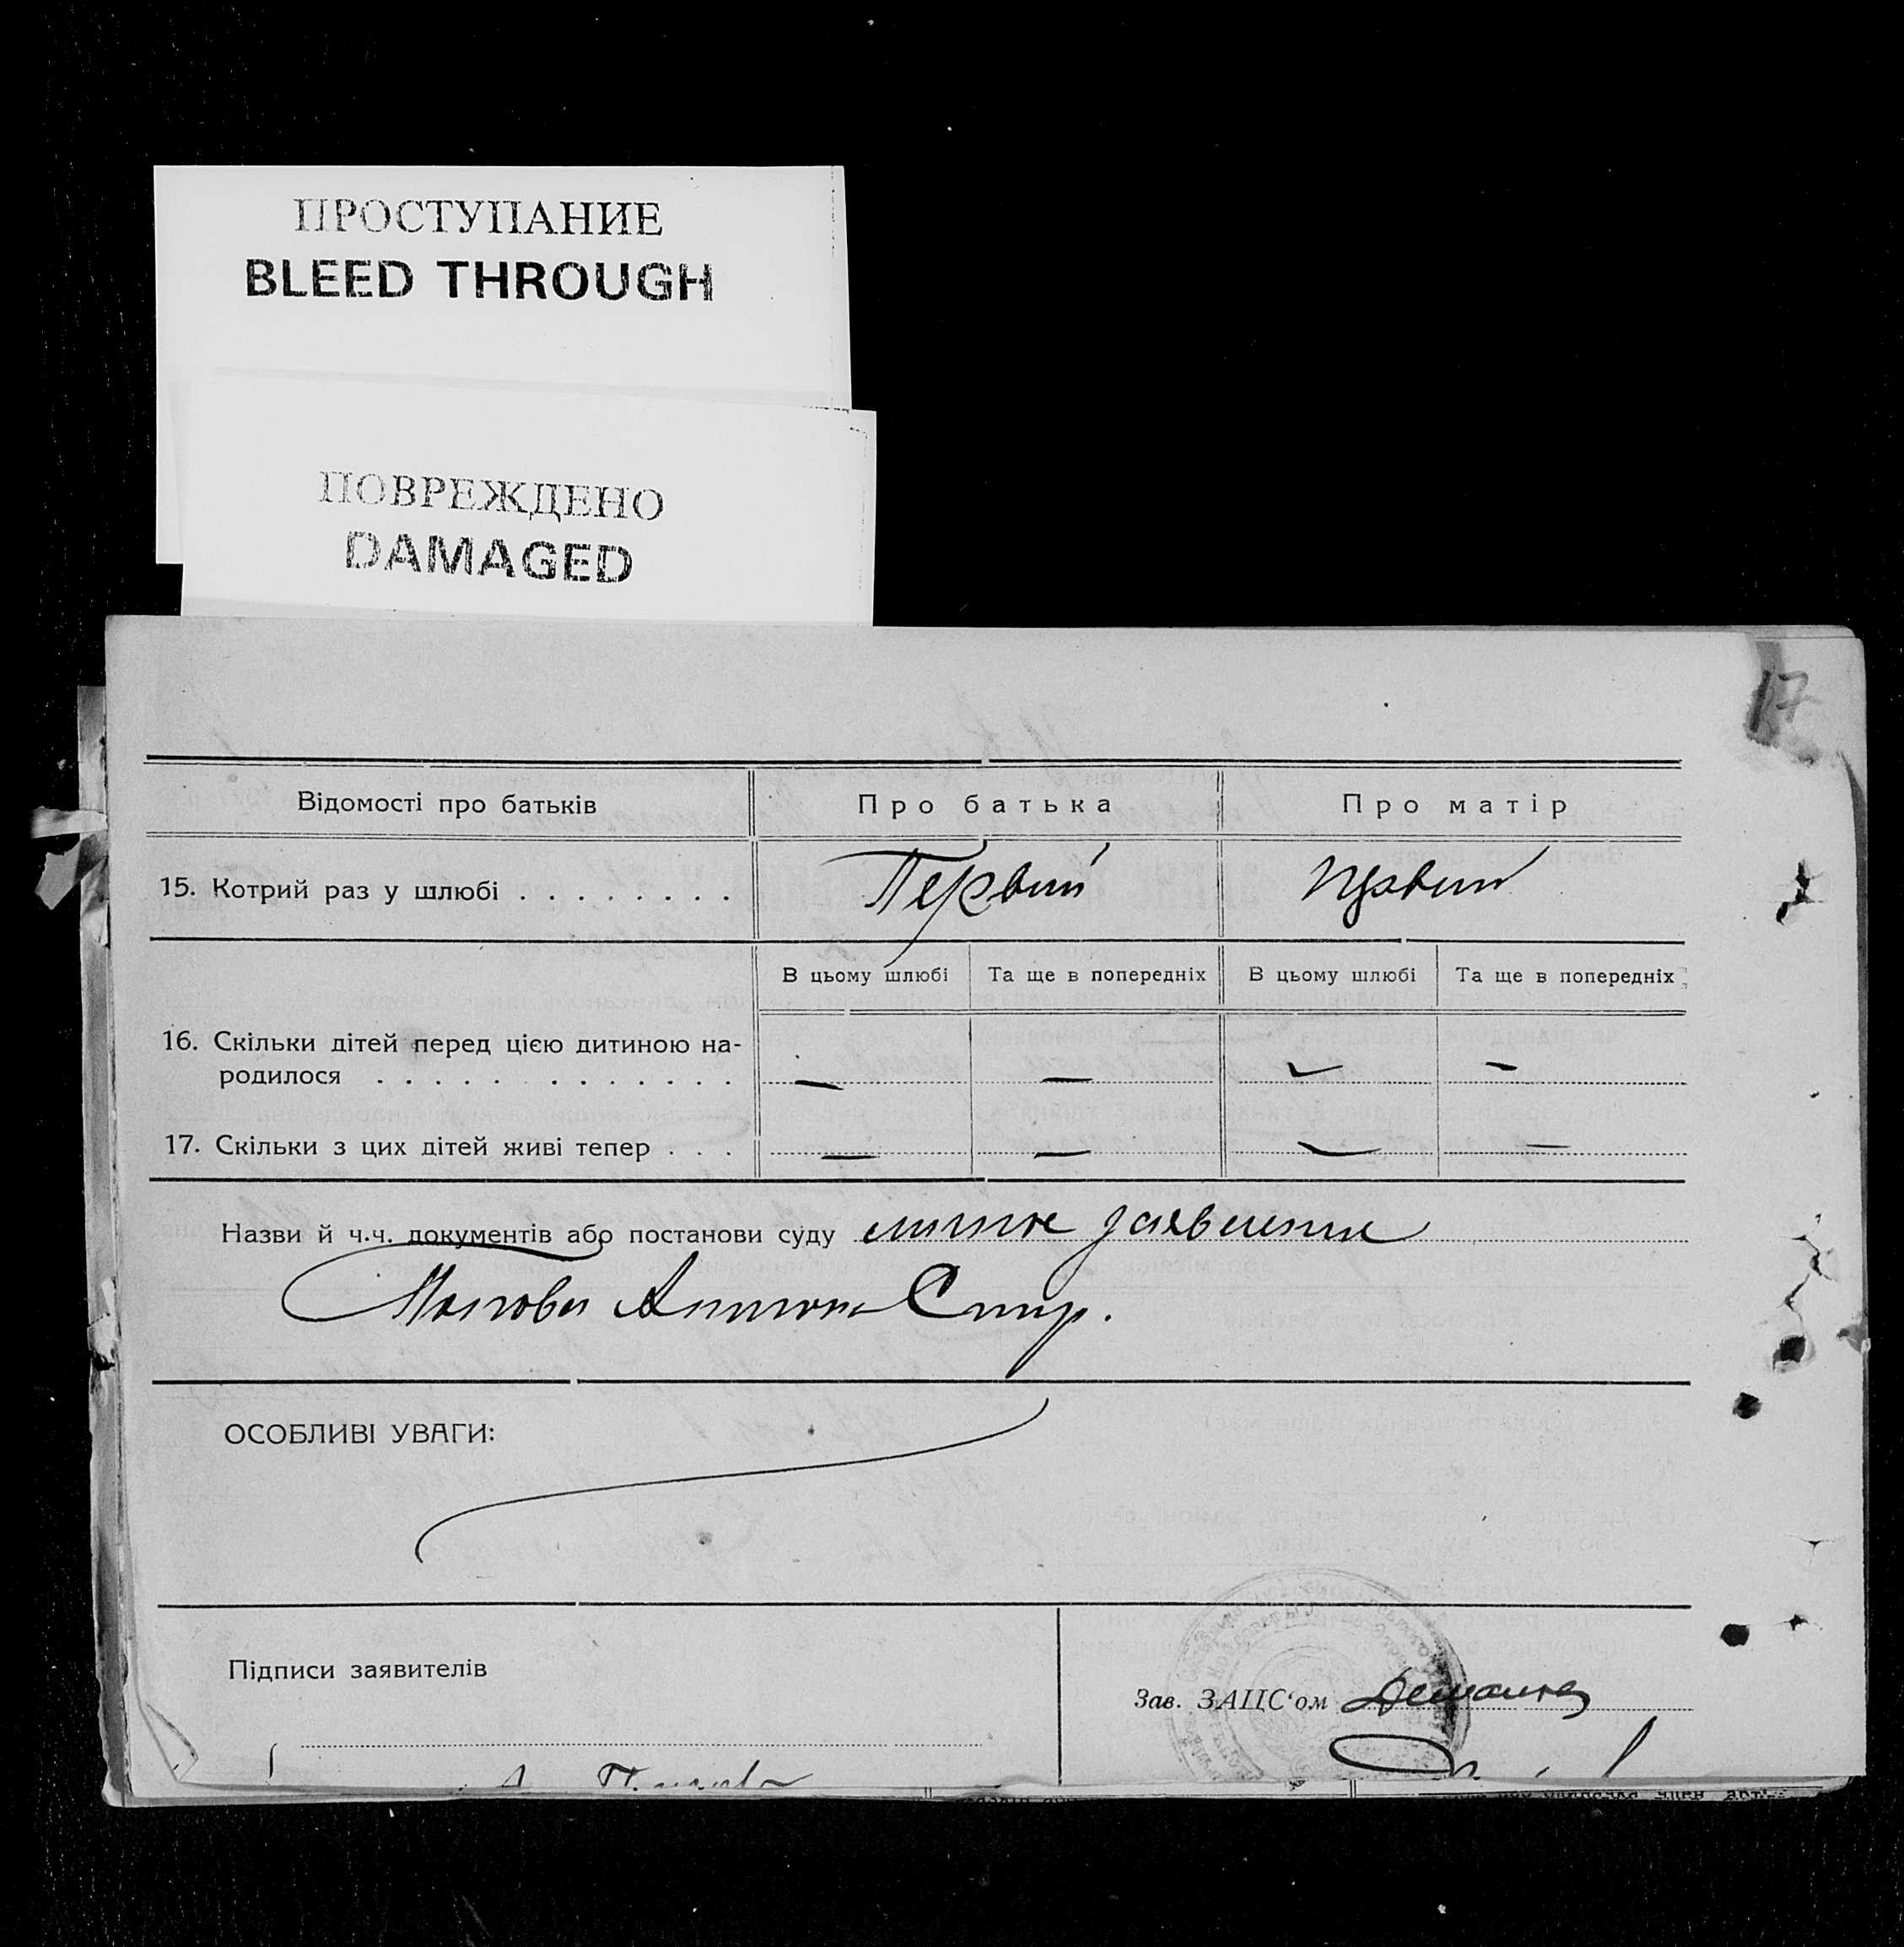 ПРОСТУПАНИЕ
BLEED THROUGH
ПОВРЕЖДЕНО
DAMAGED
17
Відомості про батьків Про батька Про матір
15. Котрий раз у шлюбі . . . . . . . . Первый первый
В цьому шлюбі Та ще в попередніх В цьому шлюбі Та ще в попередніх
16. Скільки дітей перед цією дитиною на-
родилося . . . . . . . . . . . . . — — — —
17. Скільки з цих дітей живі тепер . . . — — — —
Назви й ч.ч. документів або постанови суду личное заявление
ОСОБЛИВІ УВАГИ:
Підписи заявителів
Зав. ЗАЦС‘ом